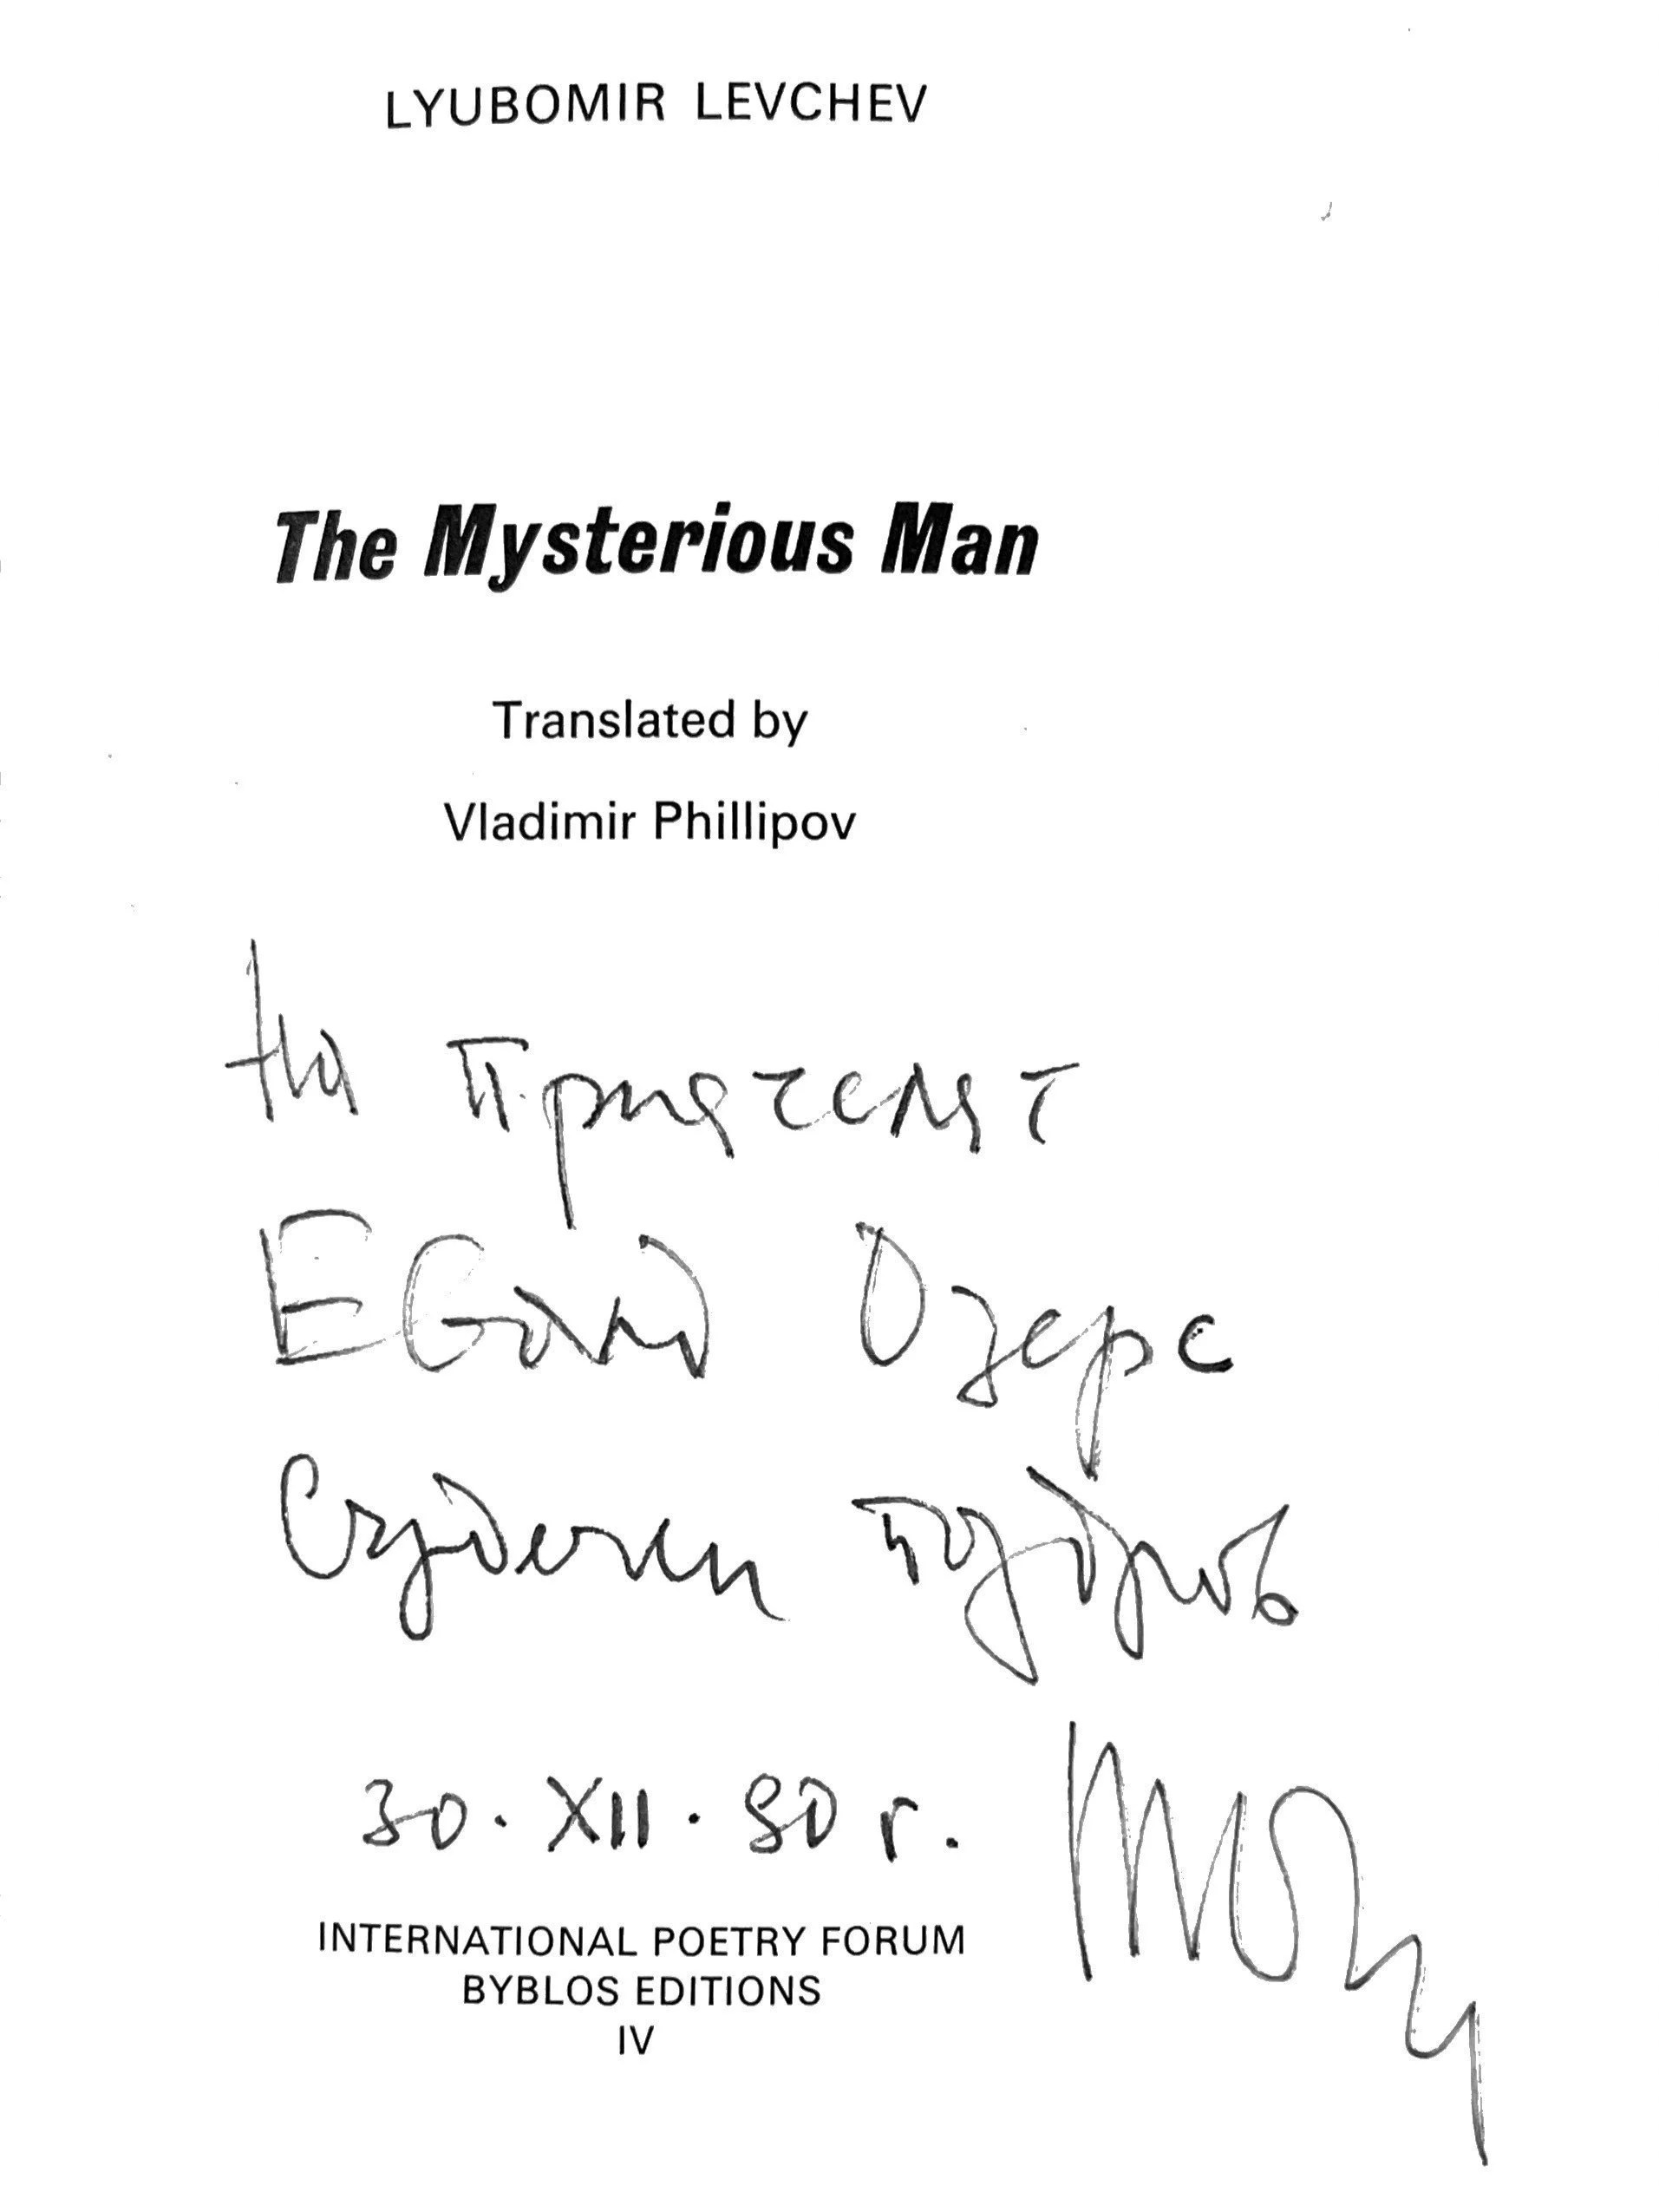 LYUBOMIR LEVCHEV
The Mysterious Man
Translated by
Vladimir Phillipov
На Приятелят
30. XII. 80 г.
INTERNATIONAL POETRY FORUM
BYBLOS EDITIONS
IV